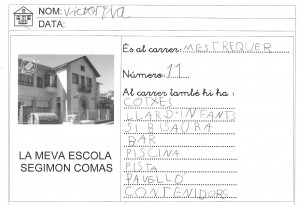 NOM: VICTORIA
DATA:
És al carrer: MESTREQUER
Número: 11
Al carrer també hi ha:
COTXES
LLARD·INFANTS
SIBISAURA
BAR
PISCINA
PISTA
PAVELLÓ
CONTENIDORS
LA MEVA ESCOLA
SEGIMON COMAS